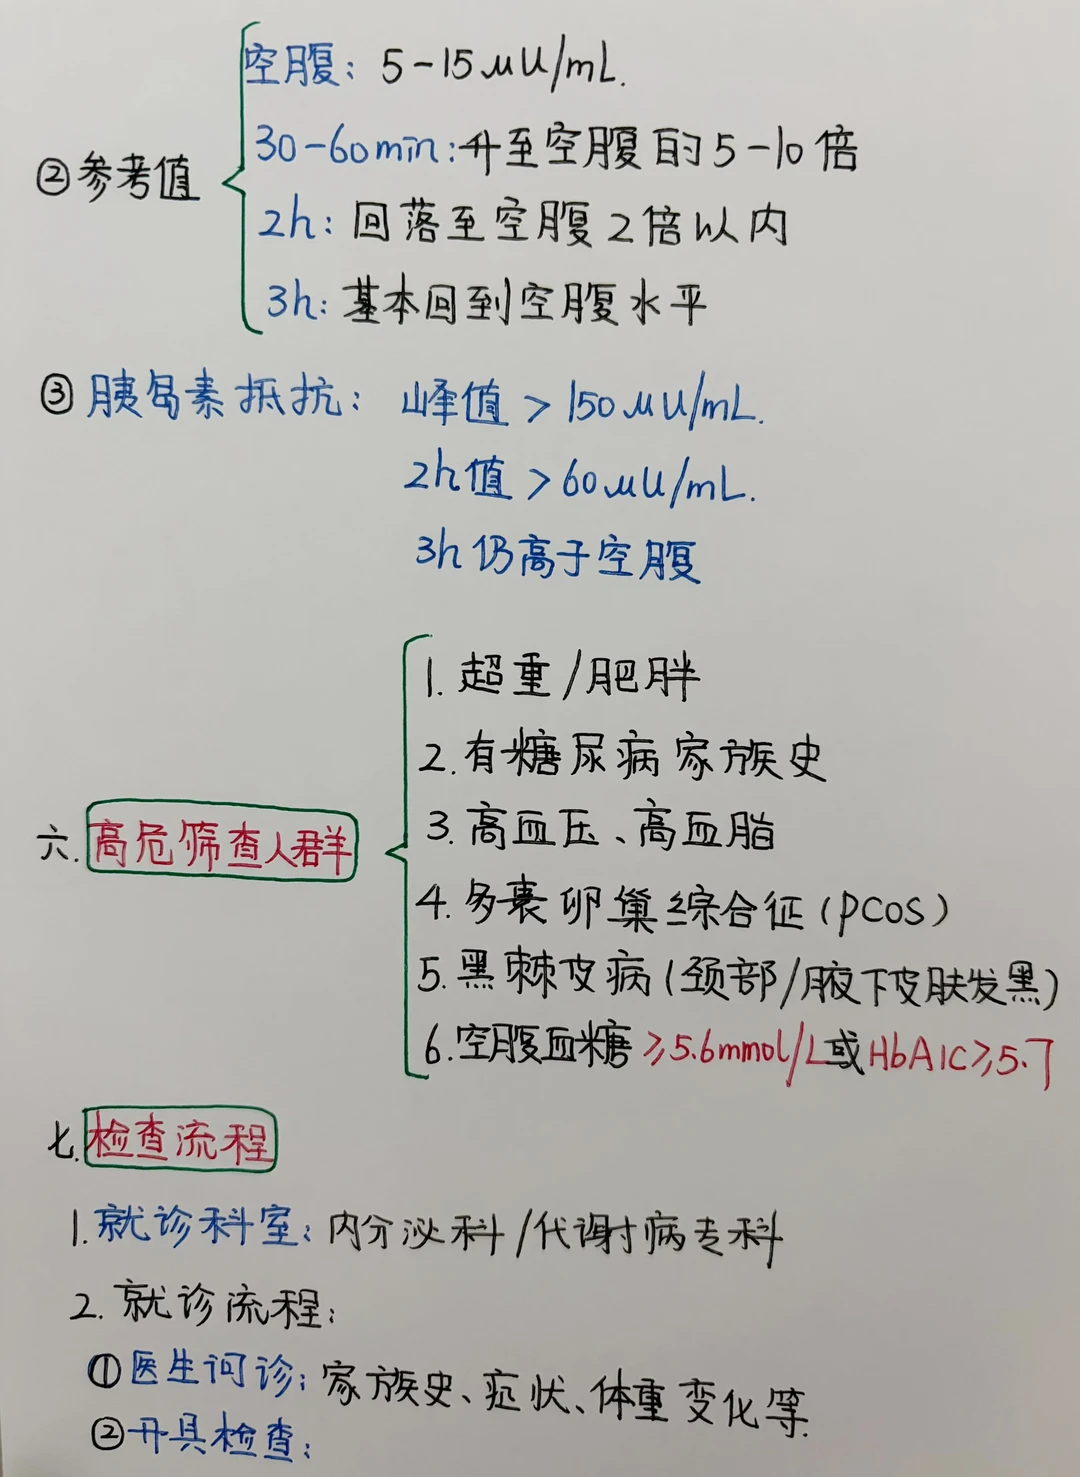 空腹: 5-15μU/mL.
30-60min:升至空腹的5-10倍
②参考值
2h: 回落至空腹2倍以内
3h: 基本回到空腹水平
③胰岛素抵抗: 峰值 > 150μU/mL.
2h值 > 60μU/mL.
3h仍高于空腹
1. 超重/肥胖
2. 有糖尿病家族史
3. 高血压、高血脂
六. 高危筛查人群
4. 多囊卵巢综合征(PCOS)
5. 黑棘皮病(颈部/腋下皮肤发黑)
6. 空腹血糖≥5.6mmol/L或HbA1C≥5.7
七. 检查流程
1. 就诊科室: 内分泌科/代谢病专科
2. 就诊流程:
①医生问诊: 家族史、症状、体重变化等.
②开具检查: